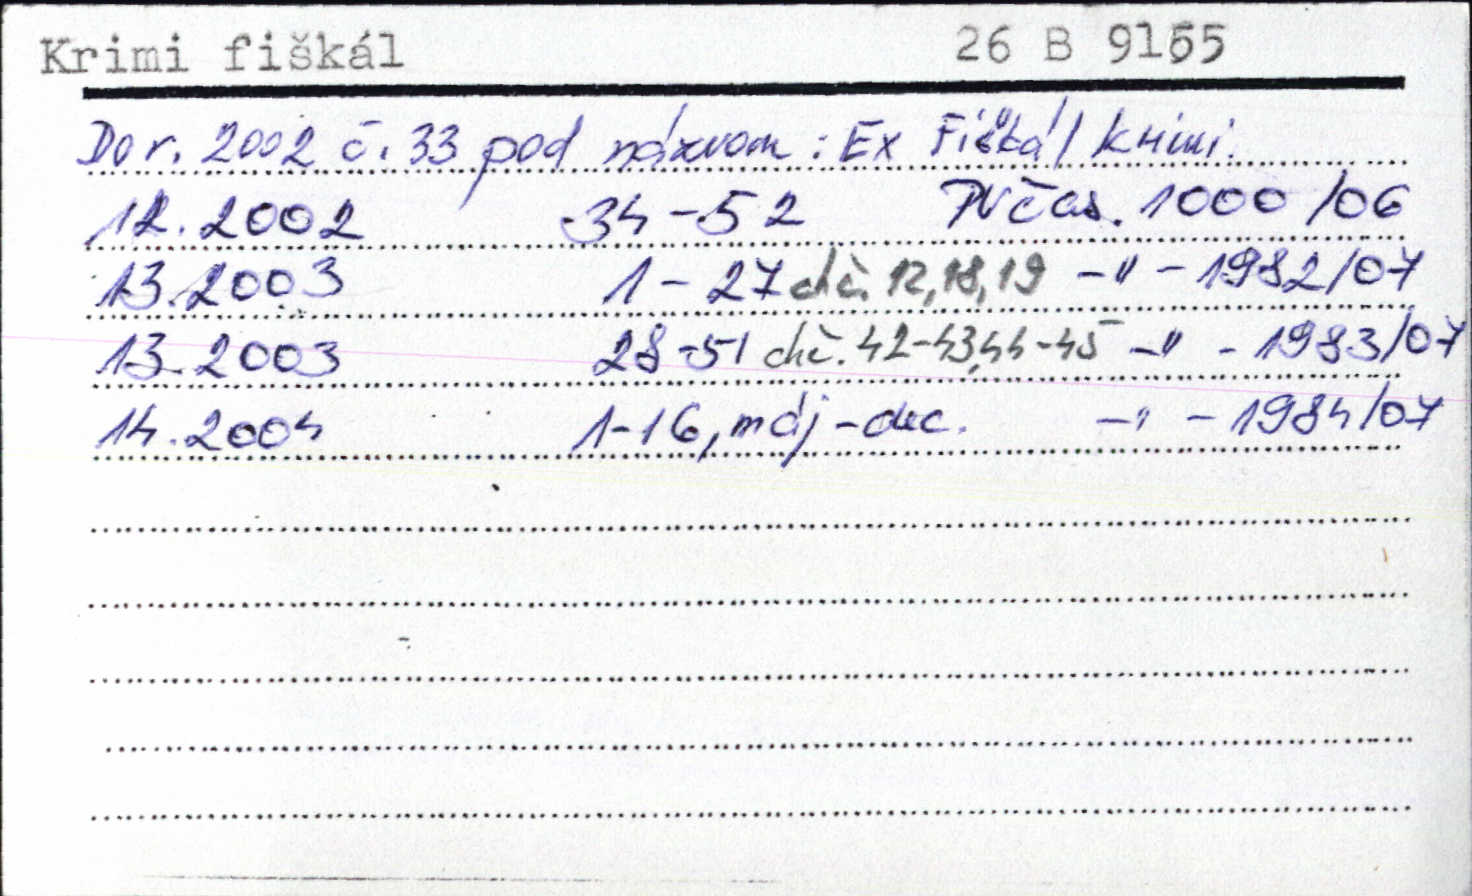 Krimi fiškál 26 B 9155
Do r. 2002 č. 33 pod názvom: Ex Fiškál krimi.
12. 2002 34-52 PVčas. 1000/06
13. 2003 1-27 chč. 12,18,19 -"- 1982/07
13. 2003 28-51 chč. 42-43,44-45 -"- 1983/07
14. 2004 1-16, máj-dec. -"- 1984/07